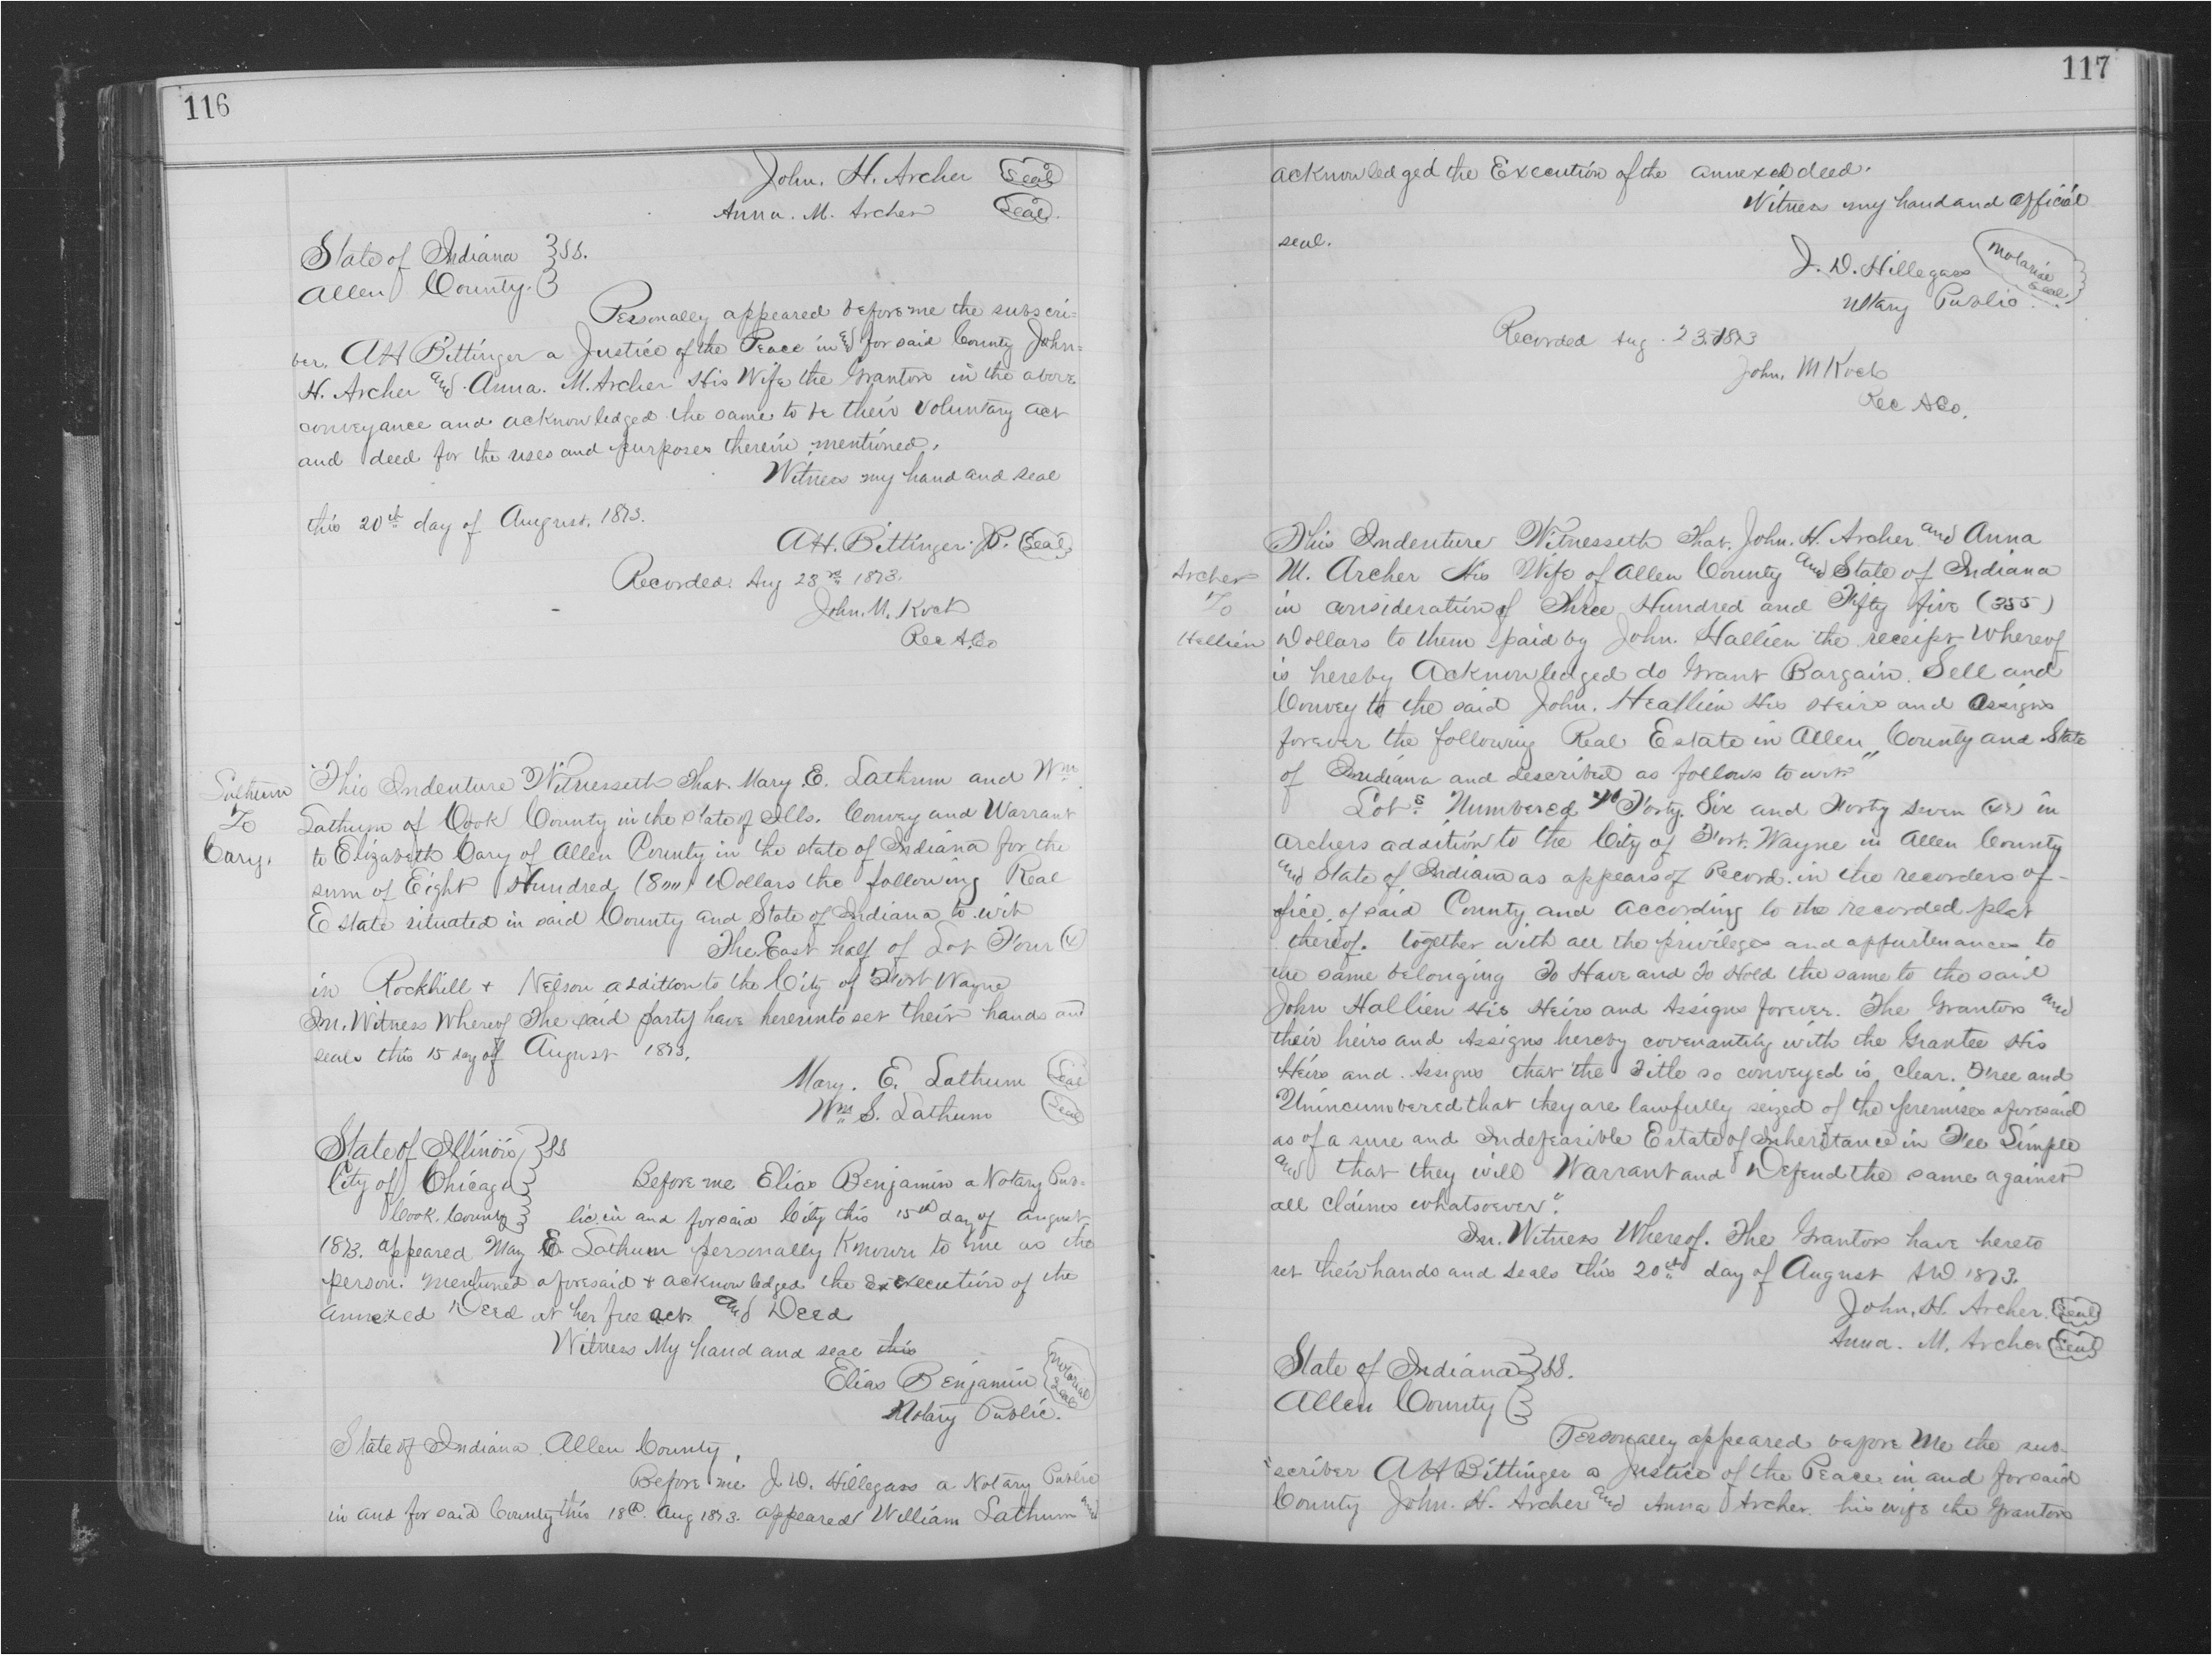 116
John. H. Archer (Seal)
Anna. M. Archer (Seal)
State of Indiana } SS.
Allen County. }
Personally appeared before me the subscri=
ber, AH Bittinger a Justice of the Peace in & for said County John=
H. Archer and Anna. M. Archer His Wife the Grantors in the above
conveyance and acknowledged the same to be their voluntary act
and deed for the uses and purposes therein mentioned,
Witness my hand and seal
this 20th day of August, 1873.
A.H. Bittinger. J.P. (Seal)
Recorded. Aug 23rd 1873.
John. M. Koch
Rec A.Co
Lathum
To
Cary.
This Indenture Witnesseth That. Mary. E. Lathum and Wm.
Lathum of Cook County in the state of Ills. Convey and Warrant
to Elizabeth Cary of Allen County in the state of Indiana for the
sum of Eight Hundred (800) Dollars the following Real
Estate situated in said County and State of Indiana to wit
The East half of Lot Four (4)
in Rockhill + Nelson addition to the City of Fort Wayne
In. Witness Whereof The said party have hereunto set their hands and
seals this 15 day of August 1873.
Mary. E. Lathum (Seal)
Wm S. Lathum (Seal)
State of Illinois } SS
City of Chicago }
Cook. County }
Before me Elias Benjamin a Notary Pub=
lic. in and for said City this 15th day of August
1873. appeared May E. Lathum personally Known to me as the
person. mentioned aforesaid + acknowledged the Execution of the
annexed Deed at her free act. and Deed
Witness My hand and seal this
Elias Benjamin (Notarial Seal)
Notary Public.
State of Indiana. Allen County.
Before me J. D. Hillegass a Notary Public
in and for said County this 18th. Aug 1873. appeared William Lathum and
117
acknowledged the Execution of the annexed deed.
Witness my hand and official
seal.
J. D. Hillegass (Notarial Seal)
Notary Public
Recorded Aug. 23. 1873
John. M Koch
Rec A Co.
Archer
To
Hallien
This Indenture Witnesseth That. John. H. Archer and Anna
M. Archer His Wife of Allen County and State of Indiana
in consideration of Three Hundred and Fifty five (355)
Dollars to them paid by John. Hallien the receipt Whereof
is hereby Acknowledged do Grant Bargain. Sell and
Convey to the said John. Hallien His Heirs and Assigns
forever the following Real Estate in Allen County and State
of Indiana and described as follows to wit"
Lots Numbered Forty. Six and Forty seven (47) in
Archers addition to the City of Fort. Wayne in Allen County
and State of Indiana as appears of Record. in the recorders of-
fice. of said County and according to the recorded plat
thereof. together with all the privileges and appurtenances to
the same belonging To Have and To Hold the same to the said
John Hallien His Heirs and Assigns forever. The Grantors and
their heirs and Assigns hereby covenanting with the Grantee His
Heirs and Assigns that the Title so conveyed is clear. Free and
Unincumbered that they are lawfully seized of the premises aforesaid
as of a sure and Indefeasible Estate of Inheritance in Fee Simple
and that they will Warrant and Defend the same against
all claims whatsoever".
In. Witness Whereof. The Grantors have hereto
set their hands and seals this 20th day of August AD 1873.
John. H. Archer. (Seal)
Anna. M. Archer (Seal)
State of Indiana } SS.
Allen County }
Personally appeared before Me the sub-
scriber AH Bittinger a Justice of the Peace. in and for said
County John. H. Archer and Anna Archer. his wife the Grantors